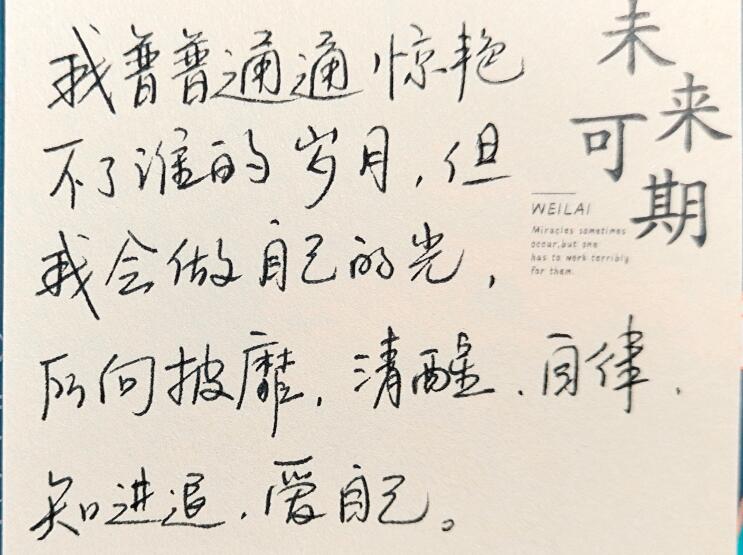 我普普通通惊艳
不了谁的岁月,但
我会做自己的光,
所向披靡,清醒、自律、
知进退、爱自己。
未来可期
WEILAI
Miracles sometimes
occur,but one
has to work terribly
for them.